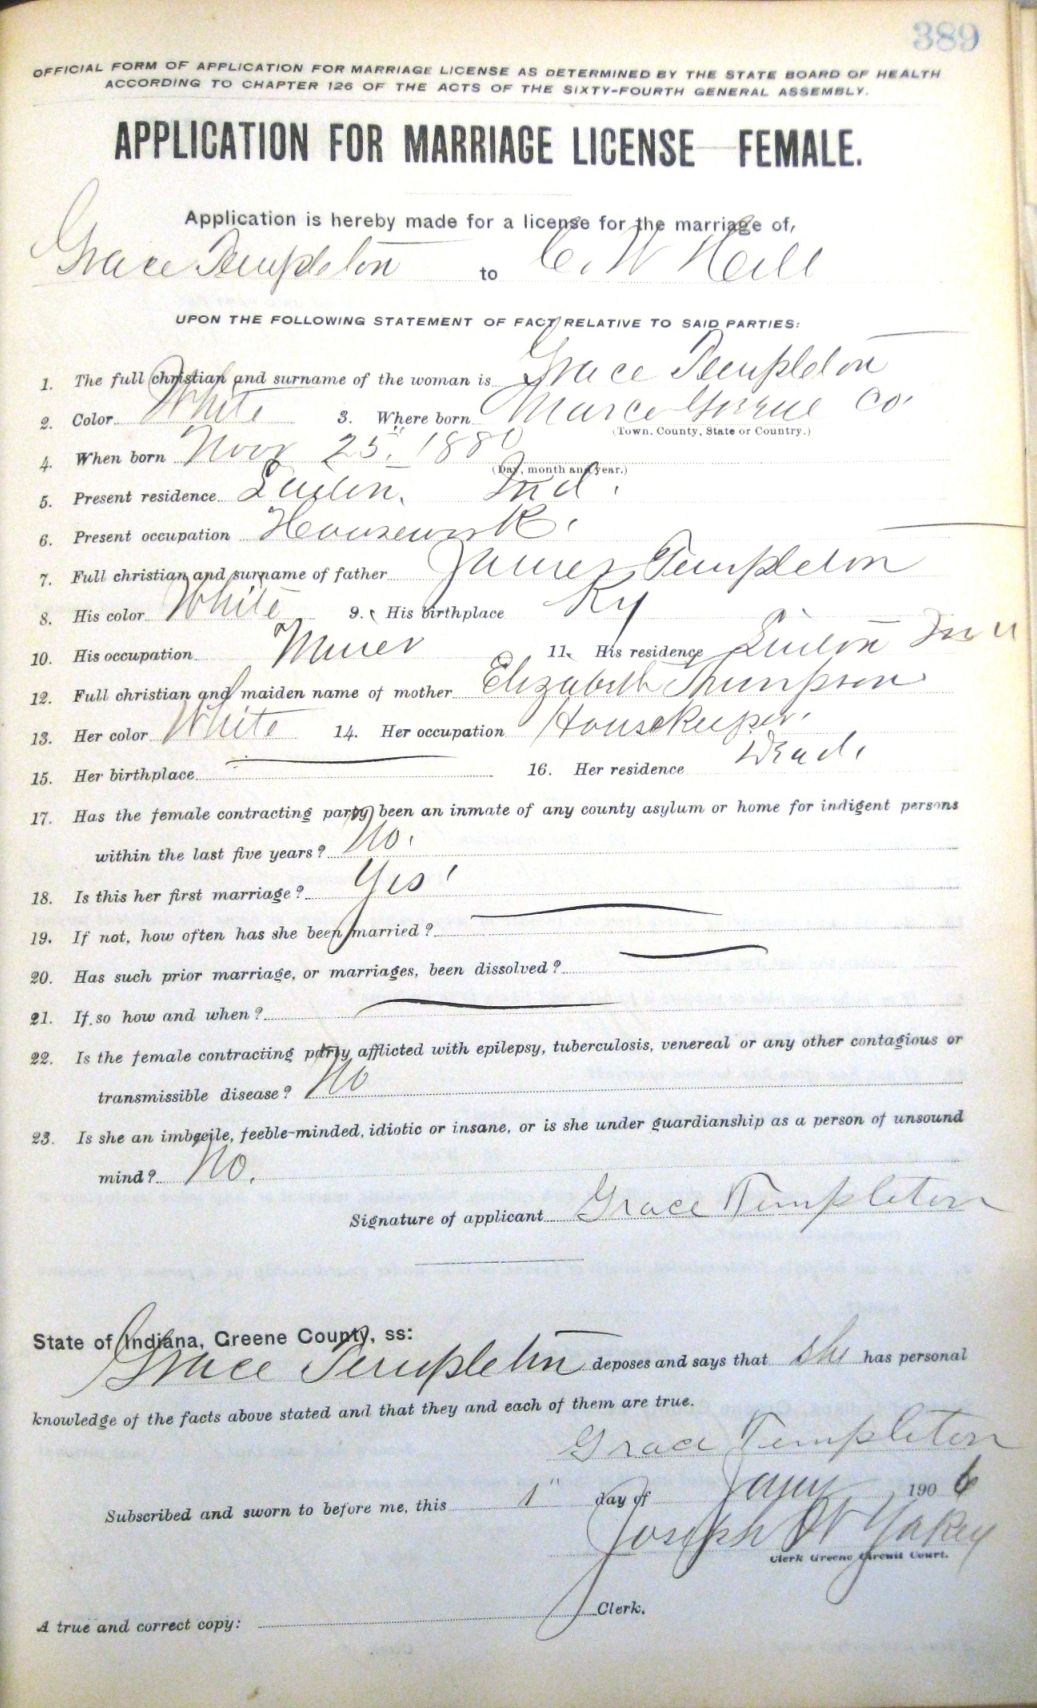 389
OFFICIAL FORM OF APPLICATION FOR MARRIAGE LICENSE AS DETERMINED BY THE STATE BOARD OF HEALTH
ACCORDING TO CHAPTER 126 OF THE ACTS OF THE SIXTY-FOURTH GENERAL ASSEMBLY.
APPLICATION FOR MARRIAGE LICENSE FEMALE.
Application is hereby made for a license for the marriage of,
Grace Templeton to C. W
UPON THE FOLLOWING STATEMENT OF FACT RELATIVE TO SAID PARTIES:
1. The full christian and surname of the woman is Grace Templeton
2. Color White 3. Where born Marco Greene Co.
(Town, County, State or Country.)
4. When born Nov 25, 1880
(Day, month and year.)
5. Present residence Linton, Ind.
6. Present occupation Housework.
7. Full christian and surname of father James Templeton
8. His color White 9. His birthplace Ky
10. His occupation Miner 11. His residence Linton Ind
12. Full christian and maiden name of mother Elizabeth Thimpson
13. Her color White 14. Her occupation Housekeeper.
15. Her birthplace 16. Her residence Dead.
17. Has the female contracting party been an inmate of any county asylum or home for indigent persons
within the last five years? No.
18. Is this her first marriage? Yes
19. If not, how often has she been married?
20. Has such prior marriage, or marriages, been dissolved?
21. If so how and when?
22. Is the female contraciing party afflicted with epilepsy, tuberculosis, venereal or any other contagious or
transmissible disease? No
23. Is she an imbecile, feeble-minded, idiotic or insane, or is she under guardianship as a person of unsound
mind? No.
Signature of applicant Grace Templeton
State of Indiana, Greene County, ss:
Grace Templeton deposes and says that she has personal
knowledge of the facts above stated and that they and each of them are true.
Grace Templeton
Subscribed and sworn to before me, this 1" day of Jany 1906
Joseph W Yakey
Clerk Greene Circuit Court.
A true and correct copy: Clerk.